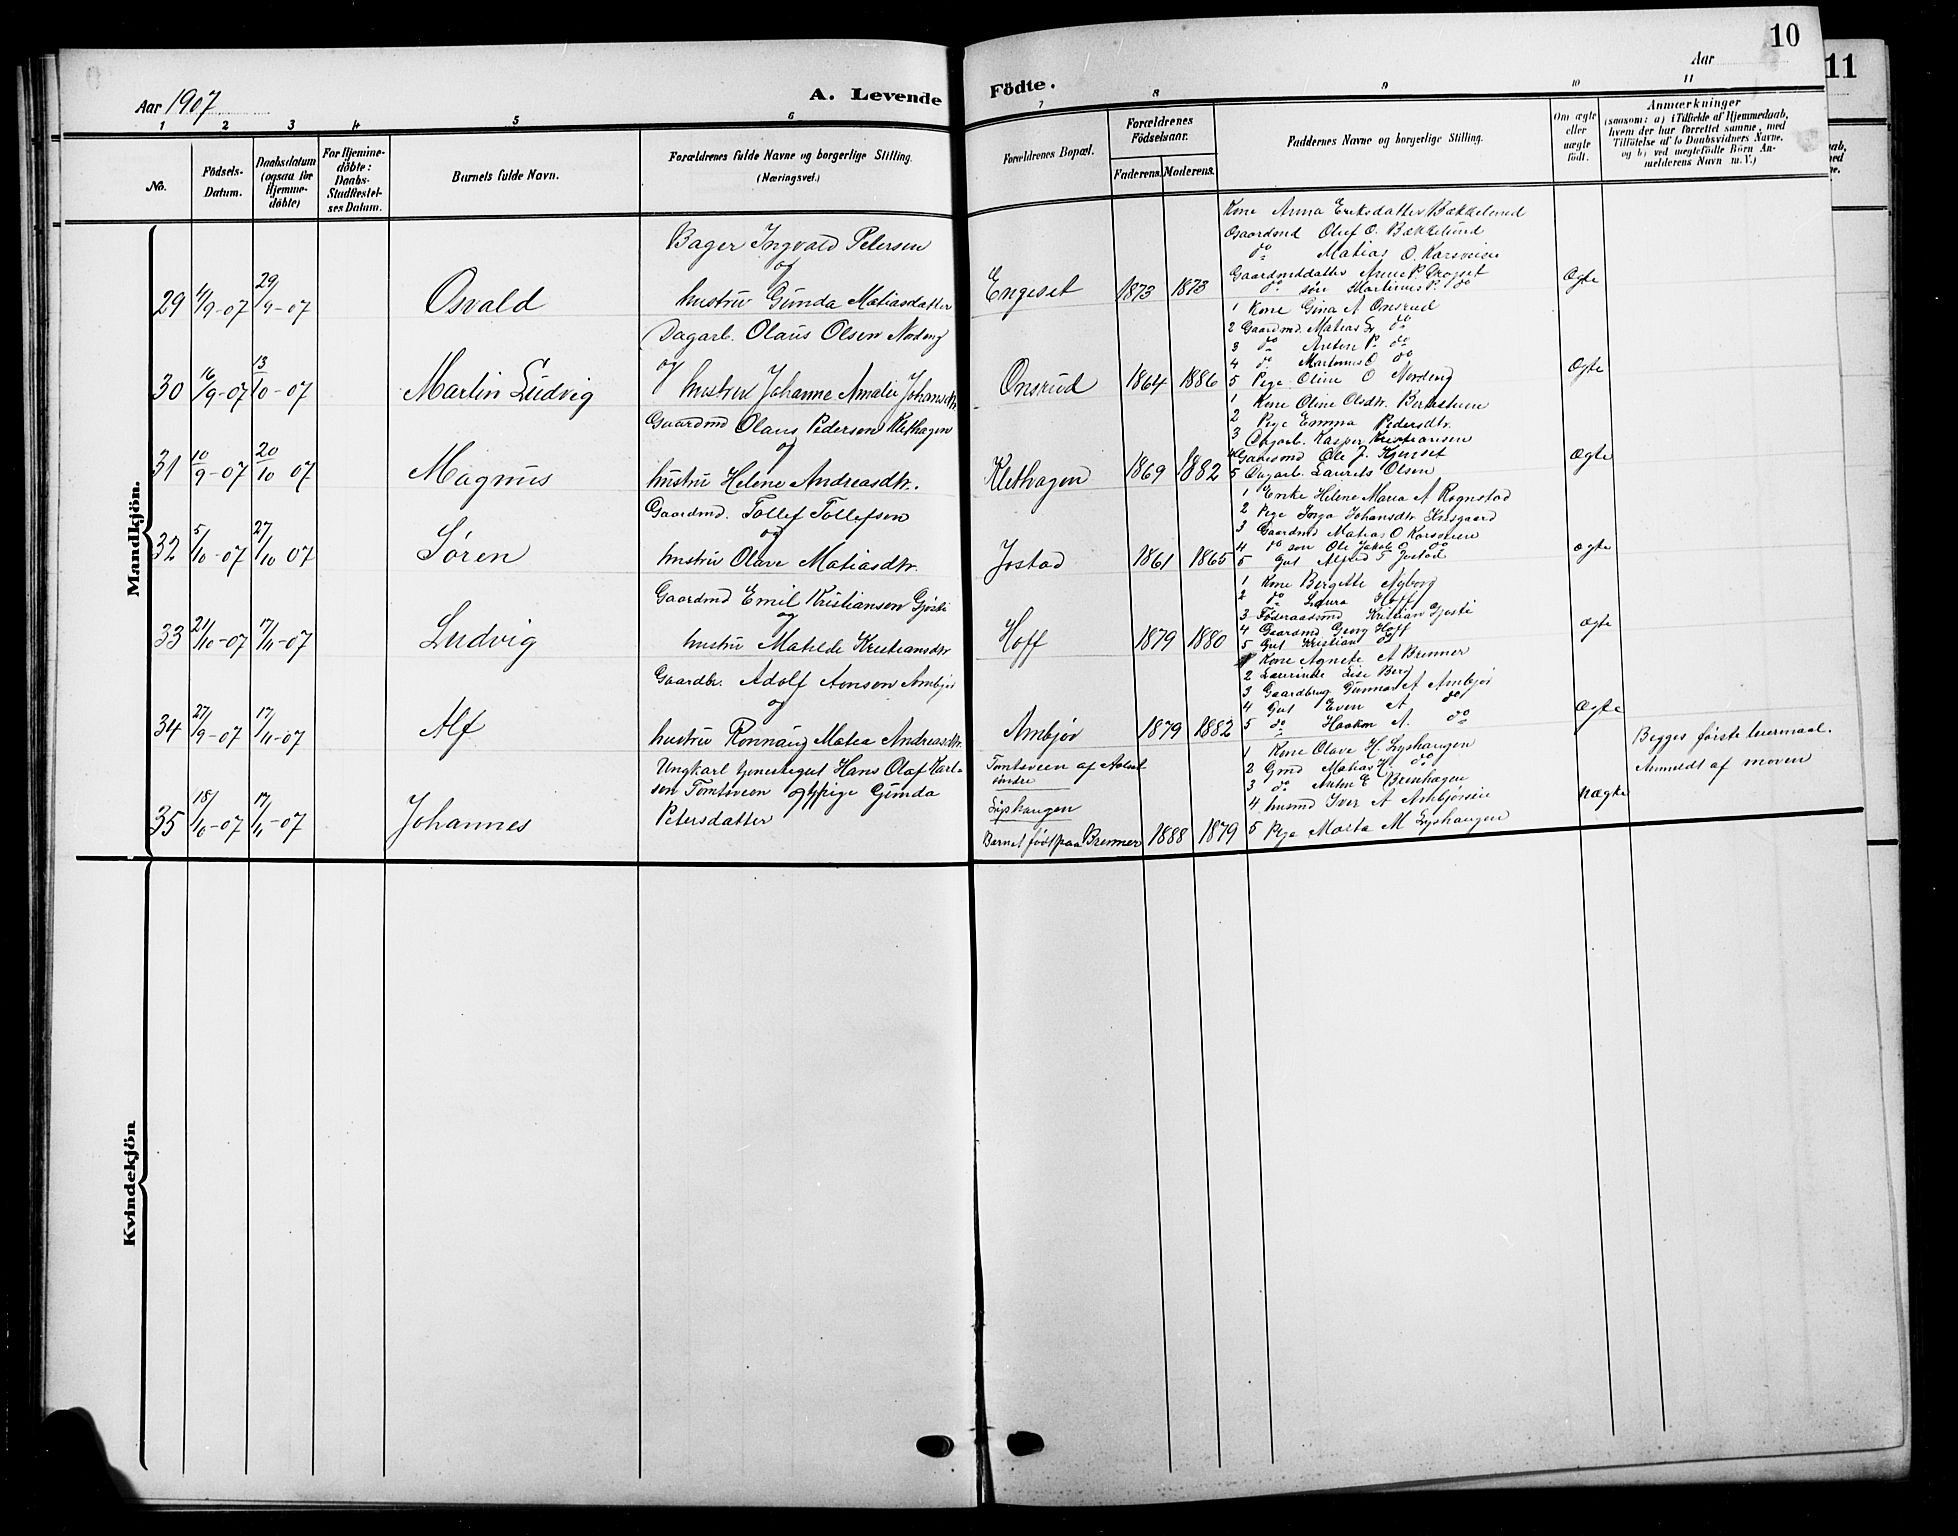 10
11
Aar 1907
A. Levende Födte.
Aar
1 2 3 4 5 6 7 8 9 10 11
No.
Födsels-Datum.
Daabsdatum (ogsaa for Hjemme-döbte)
For Hjemme-döbte: Daabs-Stadfæstelses Datum.
Barnets fulde Navn.
Forældrenes fulde Navne og borgerlige Stilling.
(Næringsvei.)
Forældrenes Bopæl.
Forældrenes Födselsaar.
Faderens. Moderens.
Faddernes Navne og borgerlige Stilling.
Om ægte eller uægte födt.
Anmærkninger
(saasom: a) i Tilfælde af Hjemmedaab,
hvem der har forrettet samme, med
Tilföielse af to Daabsvidners Navne.
og b) ved uægtefödte Börn An-
melderens Navn m. V.)
Mandkjön.
29
/9-07
29/9-07
Osvald
Bager Ingvald Petersen
og
hustru Gunda Matiasdatter
Engeset
1873 1873
Kone Anna Eriksdatter Bækkelund
Gaardmd Oluf O. Bækkelund
do Matias O. Karsveien
Gaardmddatter Anne P.
do søn Martinus P. do
Ægte
30
16/9-07
13/10-07
Martin Ludvig
Dagarb. Olaus Olsen Nordeng
og
hustru Johanne Amalie Johansdtr.
Onsrud
1864 1886
1 Kone Gina A Onsrud
2 Gaardmd. Matias L. do
3 do Anton P. do
4 do Martinus O do
5 Pige Oline O Nordeng
Ægte
31
10/9-07
20/10 07
Magnus
Gaardmd Olaus Pedersen Klethagen
og
hustru Helene Andreasdtr.
Klethagen
1869 1882
1 Kone Oline Olsdtr.
2 Pige Emma Pedersdtr.
3 Kasper Kristiansen
4 Gaardmd Ole J.
5 Dagarb. Laurits Olsen
Ægte
32
5/10-07
27/10 07
Søren
Gaardmd. Tollef Tollefsen
og
hustru Olave Matiasdtr.
Jostad
1861 1865
1 Enke Helene Maria A Rognstad
2 Pige Inga Johansdtr
3 Gaardmd Matias O Karsveien
4 do søn Ole Jakob O do
5 Gut Alfred T Jostad
Ægte
33
21/10-07
17/11-07
Ludvig
Gaardmd Emil Kristiansen Gjøsti
og
hustru Matilde Kristiansdtr
Hoff
1879 1880
1 Kone Bergitte Nyborg
2 do Laura Hoff
3 Føderaadsmd Kristian Gjøsti
4 Gaardmd Georg Hoff
5 Gut Kristian do
Ægte
34
27/9-07
17/11-07
Alf
Gaardbr. Adolf Ambjør
og
hustru Rønnaug Matea Andreasdtr.
Ambjør
1879 1882
1 Kone Agnete A Brenner
2 Lærerinde Lise Berg
3 Gaardbrug. Gunnar A Ambjør
4 Gut Even A do
5 do Haakon A. do
Ægte
35
18/10-07
17/11-07
Johannes
Ungkarl tjenestegut Hans Olaf Karl-
sen Tomtsveen og pige Gunda
Petersdatter
Tomtsveen af
søndre
Lyshaugen
Barnet født paa Brenner
1888 1879
1 Kone Olave H. Lyshaugen
2 Gmd Matias H do
3 do Anton E Brenhagen
4 husmd Iver A Ambjørseie
5 Pige Marta M Lyshaugen
Uægte
Begges første leiermaal.
Anmeldt af moren
Kvindekjön